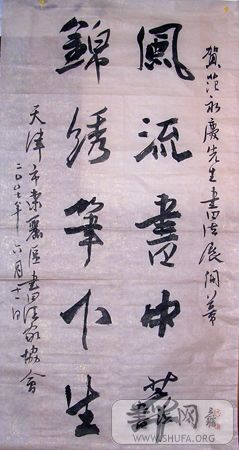 賀范永慶先生書法展開幕
風流書中
錦綉筆下生
天津市東麗區書法家協會
二〇〇七年六月 日
书法网
WWW.SHUFA.ORG